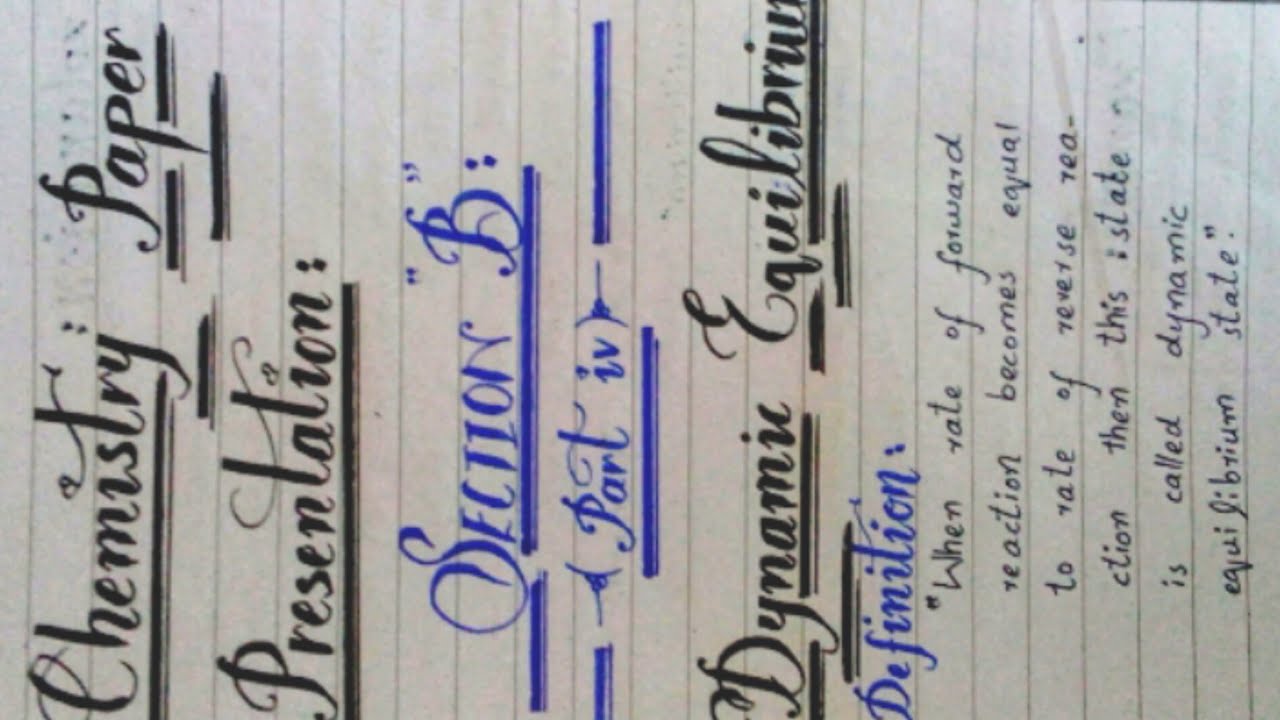 Chemistry: Paper
Presentation:
SECTION "B":
(Part iv)
Dynamic Equilibrium
Definition:
"When rate of forward
reaction becomes equal
to rate of reverse rea-
ction then this : state
is called dynamic
equilibrium state".